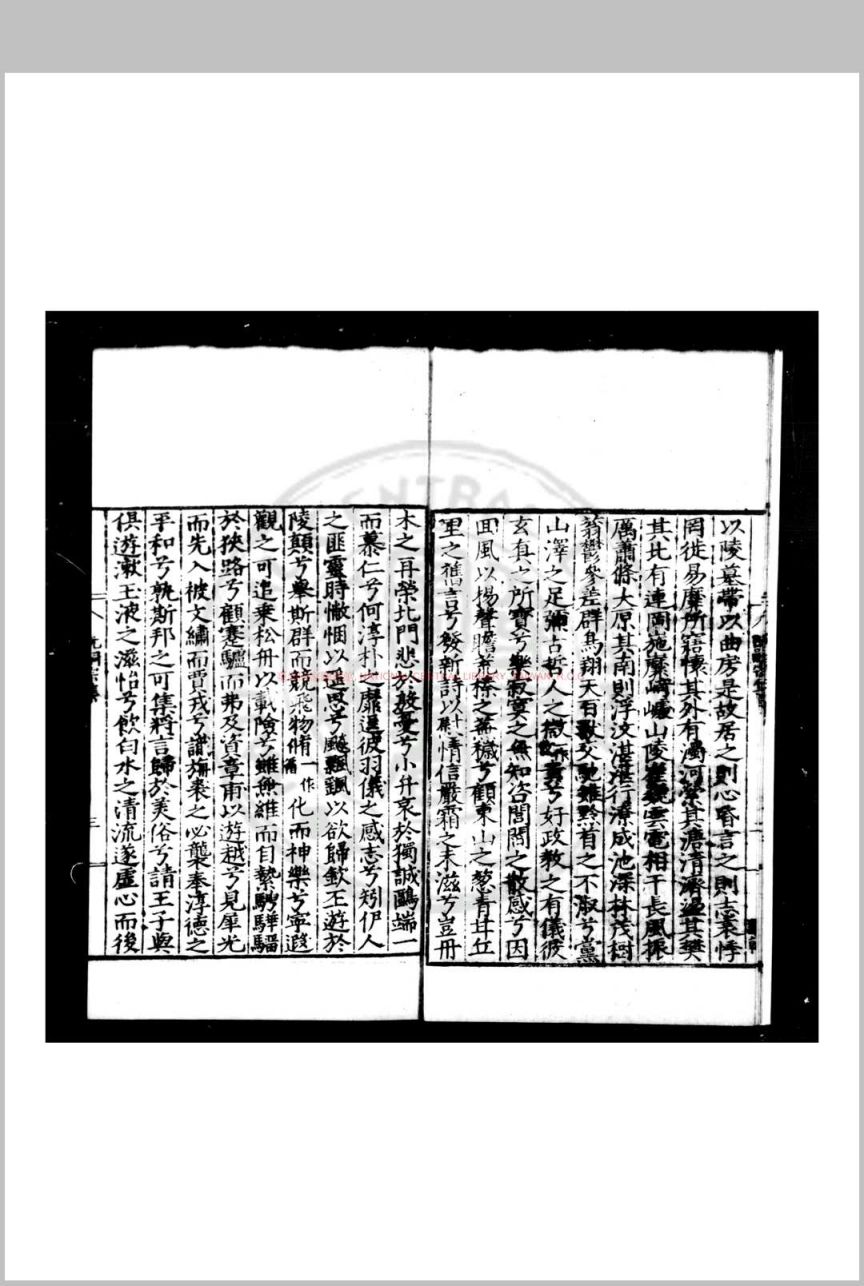 以陵墓帶以曲房是故居之則心昏言之則志哀悸
罔徙易靡所寤懷其外有濁河縈其溏清濟盪其樊
其北有連岡施靡崎嶇山陵崔巍雲電相干長風振
厲蕭條大原其南則浮汶湛湛行潦成池深林茂樹
蓊鬱參差群鳥翔天百獸交馳雖黔首之不淑兮黨
山澤之足彌古哲人之微貴兮好政教之有儀彼
玄真之所寶兮樂寂寞之無知咨閭閻之散感兮因
回風以揚聲瞻荒榛之蕪穢兮顧東山之葱青甘丘
里之舊言兮發新詩以慰情信嚴霜之未滋兮豈丹
木之再榮北門悲於殷憂兮小弁哀於獨誠鷗端一
而慕仁兮何淳朴之靡逞彼羽儀之感志兮矧伊人
之匪靈時幟悃以遥思兮飚飄颻以欲歸欽丕遊於
陵顛兮舉斯群而競飛物脩一作化而神樂兮寧遐
觀之可追乗松舟以載險兮雖無維而自縶騁驊騮
於狹路兮顧蹇驢而弗及資章甫以遊越兮見犀光
而先入被文繡而賈戎兮識旃裘之必襲奉淳德之
平和兮孰斯邦之可集將言歸於美俗兮請王子與
俱遊漱玉液之滋怡兮飲白水之清流遂虛心而後
三